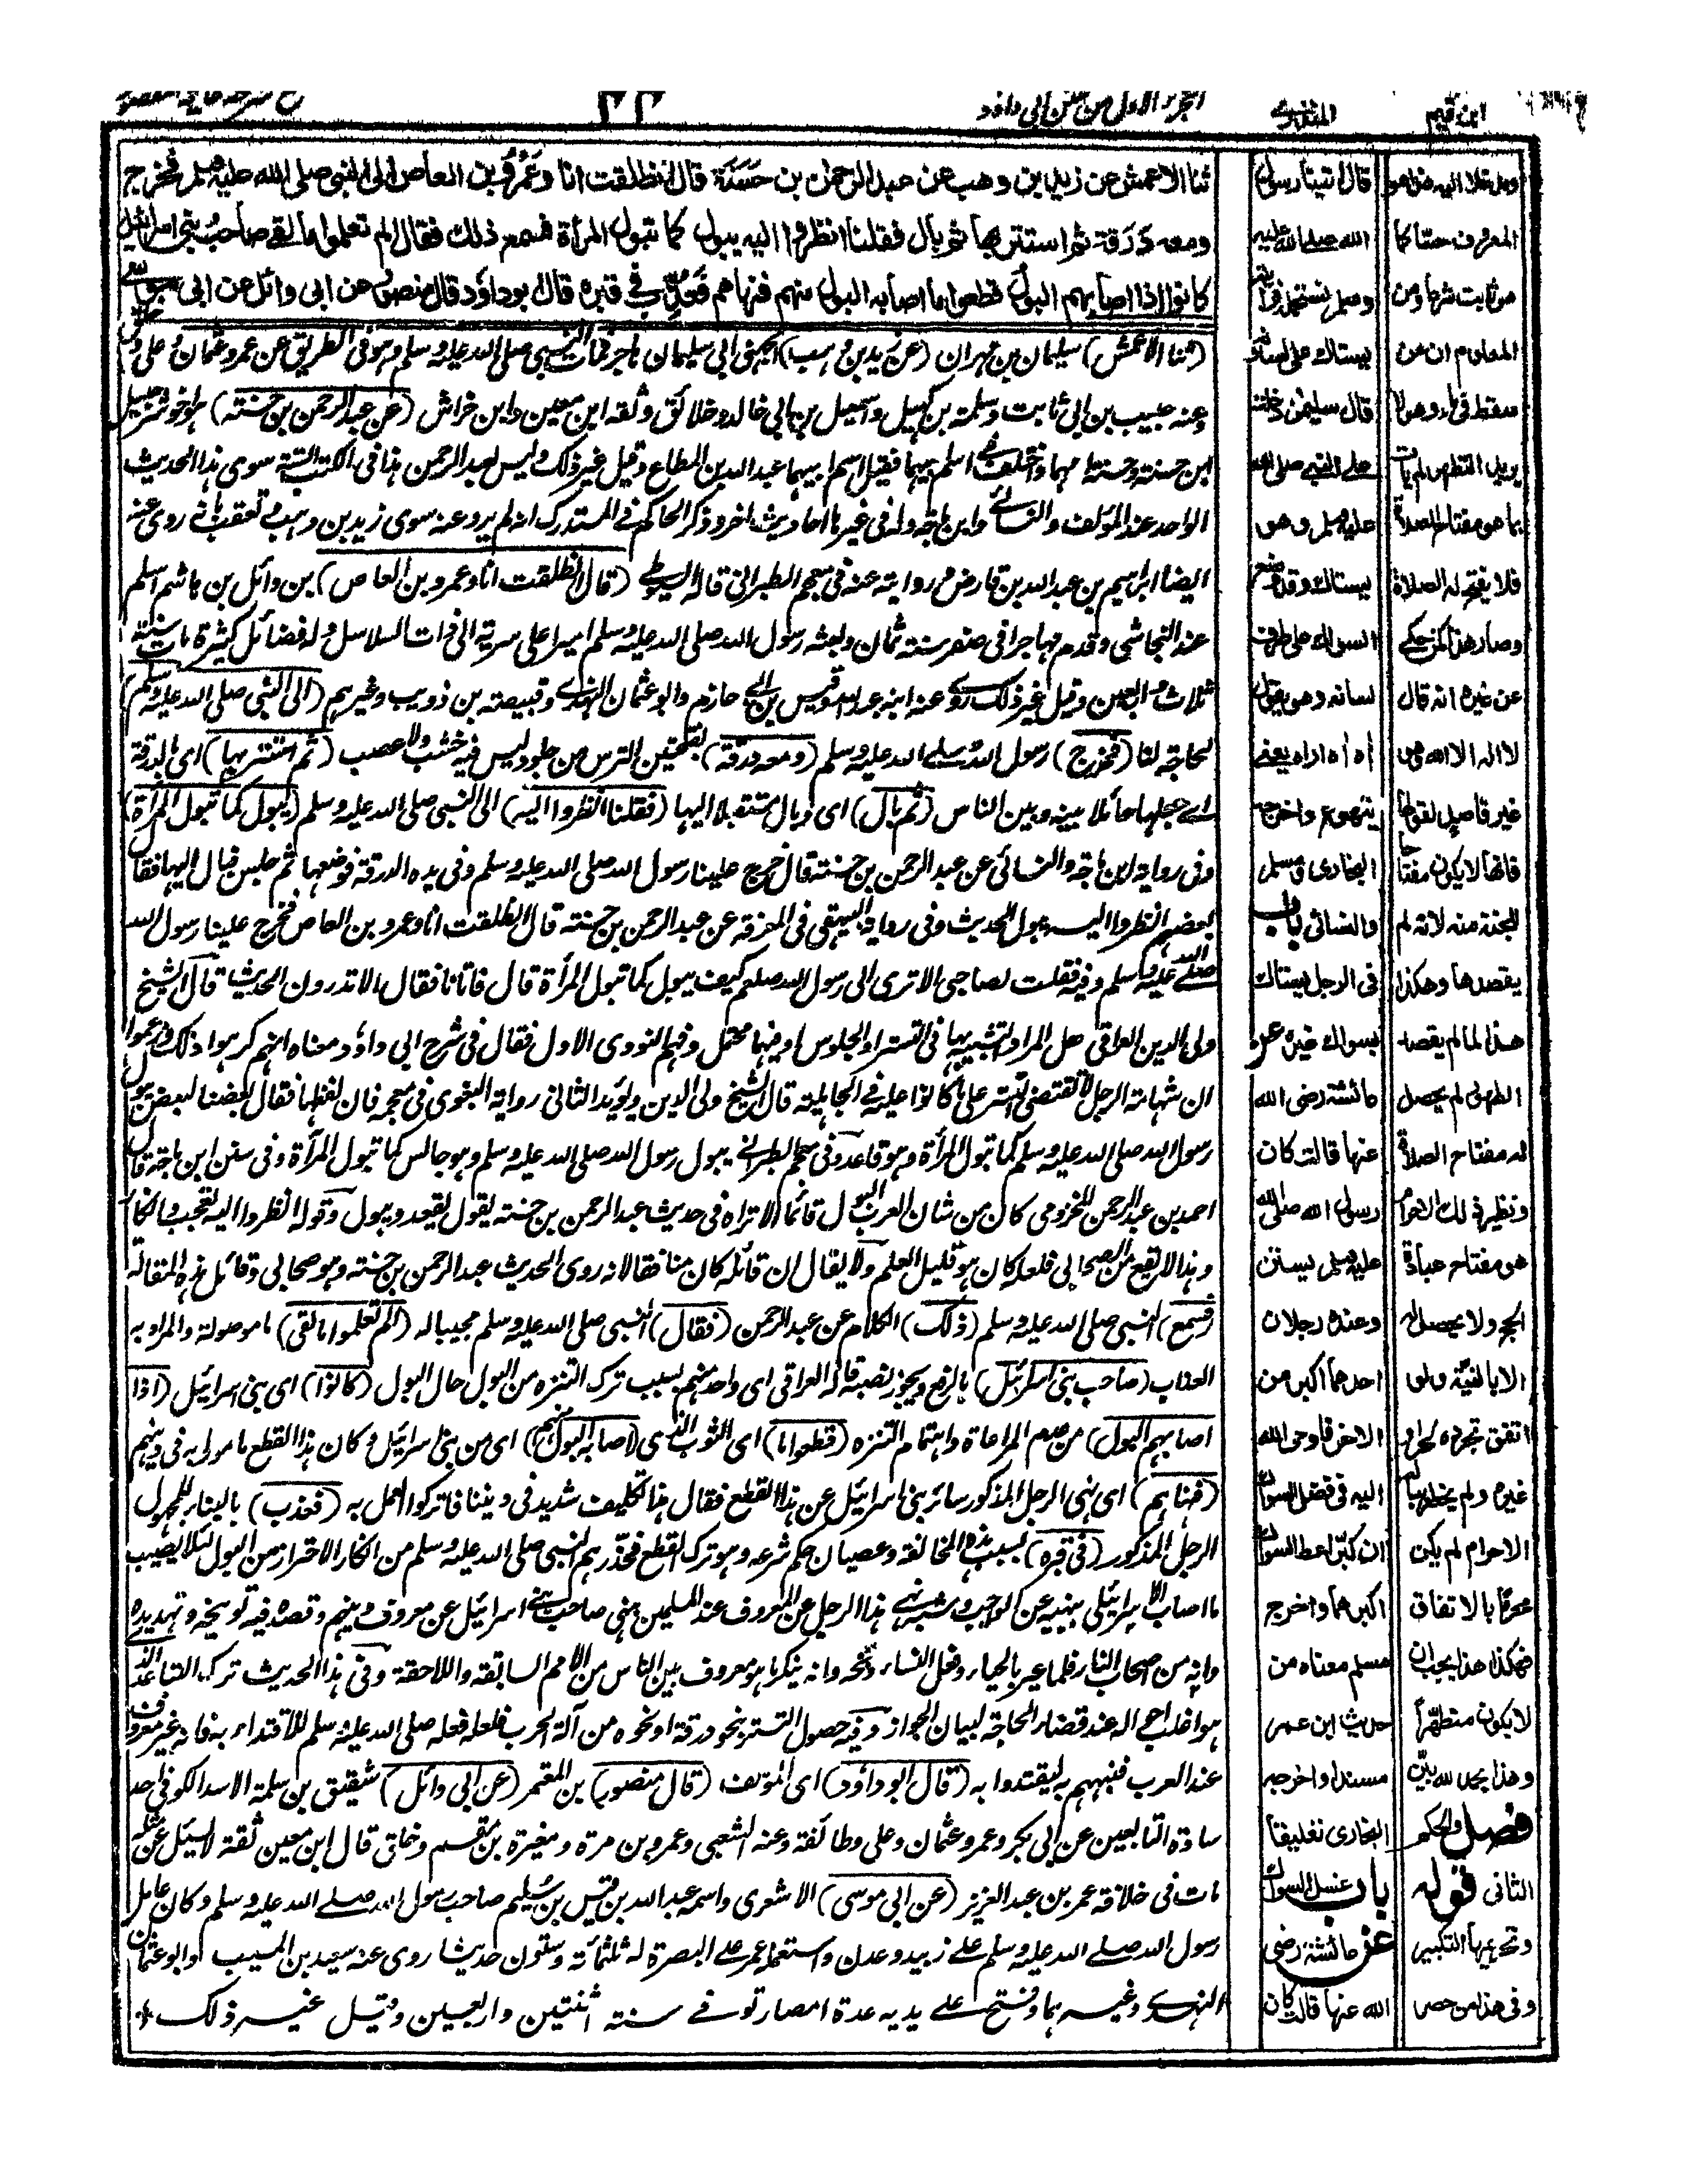 ابن قيم
المنذري
الجزء الاول من سنن ابي داؤد
٢٢
ثنا الاعمش عن زيد بن وهب عن عبد الرحمن بن حسنة قال انطلقت انا وعمرو بن العاص الى النبي صلى الله عليه وسلم فخرج
ومعه درقة ثم استتر بها ثم بال فقلنا انظروا اليه يبول كما تبول المرأة فسمع ذلك فقال الم تعلموا ما لقي صاحب بني اسرائيل
كانوا اذا اصابهم البول قطعوا ما اصابه البول منهم فنهاهم فعذب في قبره قال ابو داود قال منصور عن ابي وائل عن ابي موسى
(ثنا الاعمش) سليمان بن مهران (عن زيد بن وهب) الجهني ابي سليمان هاجر فمات النبي صلى الله عليه وسلم وهو في الطريق عن عمر وعثمان وعلي
وعنه حبيب بن ابي ثابت وسلمة بن كهيل واسمعيل بن ابي خالد وخلائق وثقه ابن معين وابن خراش (عن عبد الرحمن بن حسنة) هو اخو شرحبيل
ابن حسنة وحسنة امهما واختلف في اسم ابيهما فقيل اسم ابيهما عبد الله بن المطاع وقيل غير ذلك وليس لعبد الرحمن هذا في الكتب الستة سوى هذا الحديث
الواحد عند المؤلف والنسائي وابن ماجة وله في غيرها احاديث اخر وذكر الحاكم في المستدرك انه لم يرو عنه سوى زيد بن وهب وتعقب بانه روى عنه
ايضا ابراهيم بن عبد الله بن قارض وروايته عنه في معجم الطبراني قاله السيوطي (قال انطلقت انا وعمرو بن العاص) بن وائل بن هاشم اسلم
عند النجاشي وقدم مهاجرا في صفر سنة ثمان وبعثه رسول الله صلى الله عليه وسلم اميرا على سرية الى ذات السلاسل وله فضائل كثيرة مات سنة
ثلاث واربعين وقيل غير ذلك روى عنه ابنه عبد الله وقيس بن ابي حازم وابو عثمان النهدي وقبيصة بن ذويب وغيرهم (الى النبي صلى الله عليه وسلم)
لحاجة لنا (فخرج) رسول الله صلى الله عليه وسلم (ومعه درقة) بفتحتين الترس من جلود ليس فيه خشب ولا عصب (ثم استتر بها) اى بالدرقة
اے جعلها حائلا بينه وبين الناس (ثم بال) اى وبال مستقبلا اليها (فقلنا انظروا اليه) الى النبي صلى الله عليه وسلم (يبول كما تبول المرأة)
وفي رواية ابن ماجة والنسائي عن عبد الرحمن بن حسنة قال خرج علينا رسول الله صلى الله عليه وسلم وفي يده الدرقة فوضعها ثم جلس فبال اليها فقال
بعضهم انظروا اليه يبول الحديث وفي رواية البيهقي في المعرفة عن عبد الرحمن بن حسنة قال انطلقت انا وعمرو بن العاص فخرج علينا رسول الله
صلى الله عليه وسلم وفيه فقلت لصاحبي الا ترى الى رسول الله صلعم كيف يبول كما تبول المرأة قال فاتانا فقال الا تدرون الحديث قال الشيخ
ولي الدين العراقي هل المراد التشبيه بها في التستر او الجلوس او فيهما محتمل وفهم النووي الاول فقال في شرح ابي داود معناه انهم كرهوا ذلك وزعموا
ان شهامة الرجل لا تقتضي التستر على ما كانوا عليه في الجاهلية قال الشيخ ولي الدين ويؤيد الثاني رواية البغوي في معجمه فان لفظها فقال بعضنا لبعض يبول
رسول الله صلى الله عليه وسلم كما تبول المرأة وهو قاعد وفي معجم الطبراني يبول رسول الله صلى الله عليه وسلم وهو جالس كما تبول المرأة وفي سنن ابن ماجة قال
احمد بن عبد الرحمن المخزومي كان من شان العرب البول قائما الا تراه في حديث عبد الرحمن بن حسنة يقول يقعد ويبول وقوله انظروا اليه تعجب وانكار
وهذا لا يقع من الصحابي فلعله كان قليل العلم ولا يقال ان قائله كان منافقا لانه روى الحديث عبد الرحمن بن حسنة وهو صحابي وقائل هذه المقالة
(فسمع) النبي صلى الله عليه وسلم (ذلك) الكلام عن عبد الرحمن (فقال) النبي صلى الله عليه وسلم مجيبا له (الم تعلموا ما لقي) ما موصولة والمراد به
العذاب (صاحب بني اسرائيل) بالرفع ويجوز نصبه قاله العراقي اى واحد منهم بسبب ترك التنزه من البول حال البول (كانوا) اى بني اسرائيل (اذا
اصابهم البول) من عدم المراعاة واهتمام التنزه (قطعوا ما) اى الثوب الذى (اصابه البول منهم) اى من بني اسرائيل وكان هذا القطع مامورا به في دينهم
(فنهاهم) اى نهى الرجل المذكور سائر بني اسرائيل عن هذا القطع فقال هذا تكليف شديد في ديننا فاتركوا العمل به (فعذب) بالبناء للمجهول
الرجل المذكور (في قبره) بسبب هذه المخالفة وعصيان حكم شرعه وهو ترك القطع فحذرهم النبي صلى الله عليه وسلم من انكار الاحتراز من البول لئلا يصيب
ما اصاب الاسرائيلي بنهيه عن الواجب وشبه نهي هذا الرجل عن المعروف عند المسلمين بنهي صاحب بني اسرائيل عن معروف دينهم وقصده فيه توبيخه وتهديده
وانه من اصحاب النار فلما عير بالحياء وفعل النساء وبخه وانه ينكر ما هو معروف بين الناس من الامم السابقة واللاحقة وفي هذا الحديث ترك التباعد الذى
هو اغلب احواله عند قضاء الحاجة لبيان الجواز وفيه حصول التستر بنحو درقة او نحوه من آلة الحرب فلعله فعله صلى الله عليه وسلم للاقتداء به فانه غير معروف
عند العرب فنبههم به ليقتدوا به (قال ابو داود) اى المؤلف (قال منصور) بن المعتمر (عن ابي وائل) شقيق بن سلمة الاسدي الكوفي احد
سادة التابعين عن ابي بكر وعمر وعثمان وعلي وطائفة وعنه الشعبي وعمرو بن مرة ومغيرة بن مقسم وخلق قال ابن معين ثقة لا يسئل عن مثله
مات في خلافة عمر بن عبد العزيز (عن ابي موسى) الاشعري واسمه عبد الله بن قيس بن سليم صاحب رسول الله صلى الله عليه وسلم وكان عامل
رسول الله صلى الله عليه وسلم على زبيد وعدن واستعمله عمر على البصرة له ثلثمائة وستون حديثا روى عنه سعيد بن المسيب وابو عثمان
النهدي وغيرهما وفتح على يديه عدة امصار توفي سنة اثنتين واربعين وقيل غير ذلك *
قال اتينا رسول
الله صلى الله عليه
وسلم نستحمله فرأيته
يستاك على لسانه
قال سليمن دخلت
على النبي صلى الله
عليه وسلم وهو
يستاك وقد وضع
السواك على طرف
لسانه وهو يقول
اه اه اراه يعني
يتهوع واخرجه
البخاري ومسلم
والنسائي باب
في الرجل يستاك
بسواك غيره عن
عائشة رضي الله
عنها قالت كان
رسول الله صلى الله
عليه وسلم يستن
وعنده رجلان
احدهما اكبر من
الاخر فاوحى الله
اليه في فضل السواك
ان كبر اعط السواك
اكبرهما واخرج
مسلم معناه من
حديث ابن عمر
مسندا واخرجه
البخاري تعليقا
باب غسل السواك
عن عائشة رضي
الله عنها قالت كان
المعروف
من ثابت شرعا ومن
المعلوم ان من
سقط في ماء وهو لا
يريد التطهر لم يات
بما هو مفتاح الصلاة
فلا يفتح له الصلاة
وصار هذا كمن حكى
عن غيره انه قال
لا اله الا الله من
غير قاصد لقولها
فانها لا يكون مفتاحا
للجنة منه لانه لم
يقصدها وهكذا
هذا لما لم يقصد
الطهور لم يحصل
له مفتاح الصلاة
ونظير ذلك الاحرام
هو مفتاح عبادة
الحج ولا يحصل له
الا بالنية ولو
اتفق تجرده لحر او
غيره ولم يخطر بباله
الاحرام لم يكن
محرما بالاتفاق
فهكذا هذا يجب ان
لا يكون متطهرا
وهذا بحمد الله بين
فصل والحكم
الثاني قوله
وتحريمها التكبير
وفي هذا من حصر